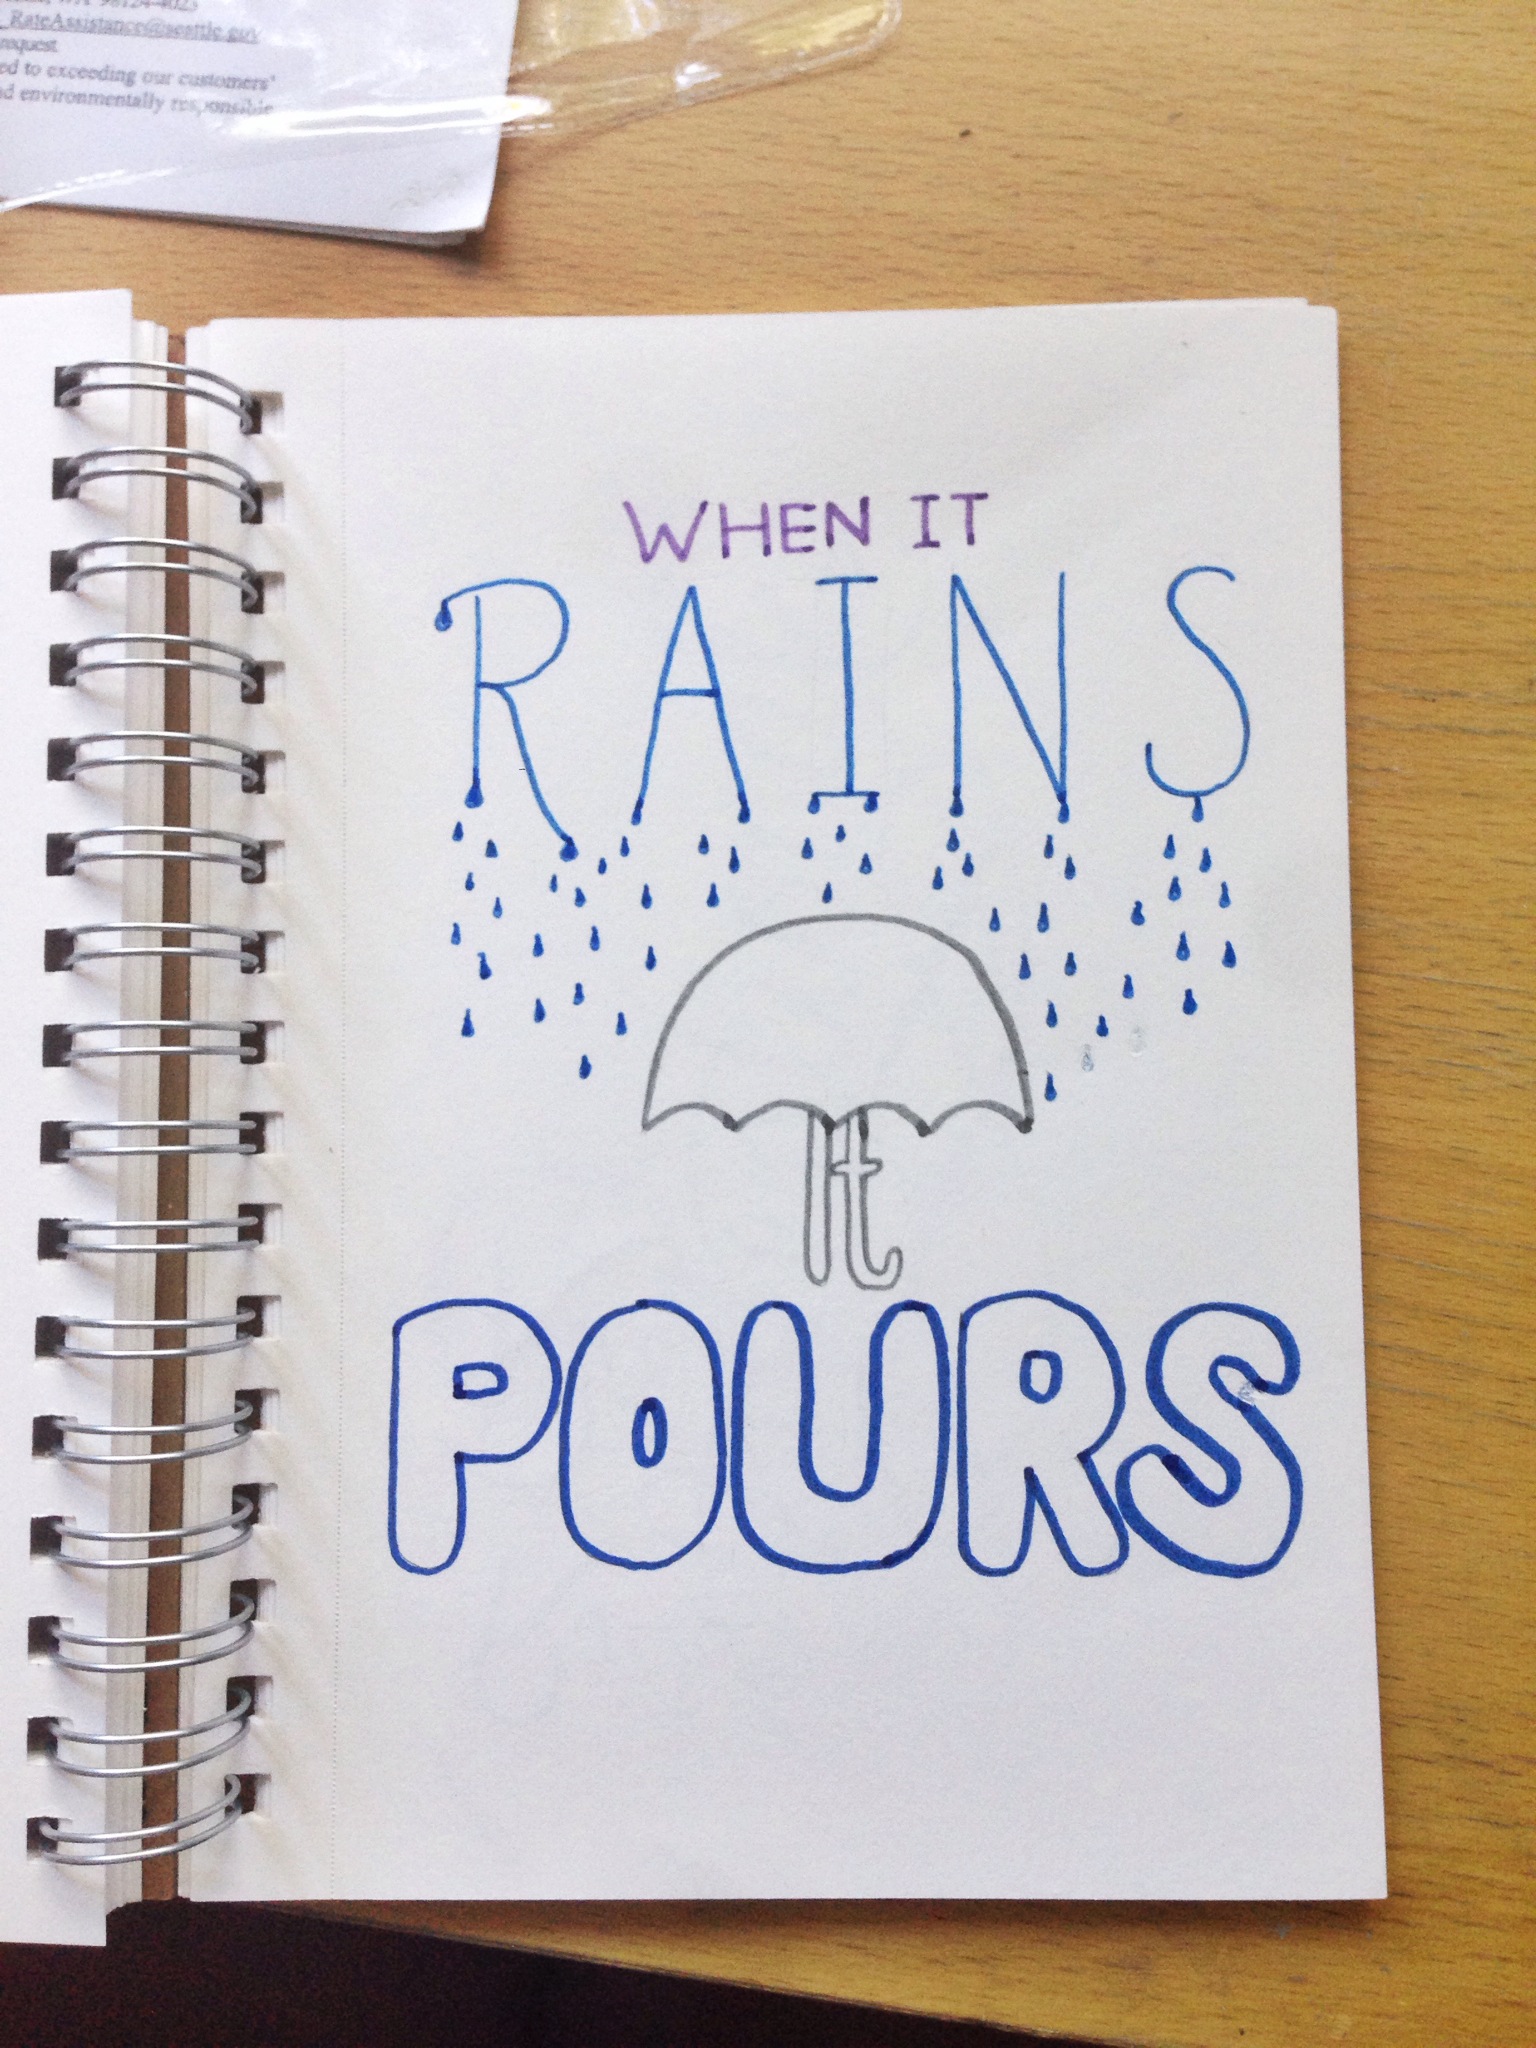 RateAssistance@seattle.gov
request
ed to exceeding our customers'
d environmentally responsible
WHEN IT
RAINS
it
POURS